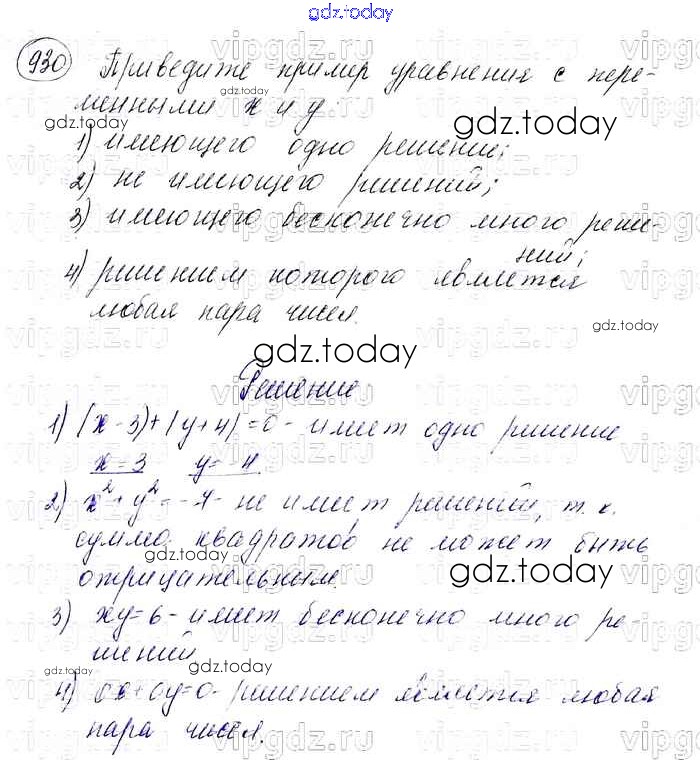 gdz.today
930 Приведите пример уравнения с пере-
менными x и y:
gdz.today
gdz.today
1) имеющего одно решение;
2) не имеющего решений;
gdz.today
3) имеющего бесконечно много реше-
ний;
4) решением которого является
gdz.today
любая пара чисел.
gdz.today
gdz.today
Решение
1) |x-3|+|y+4|=0 - имеет одно решение
x=3 y=-4
2) x²+y²=-7 - не имеет решений, т.к.
сумма квадратов не может быть
gdz.today
отрицательным.
gdz.today
3) xy=6 - имеет бесконечно много ре-
шений
gdz.today
gdz.today
4) 0x+0y=0 - решением является любая
пара чисел.
vipgdz.ru